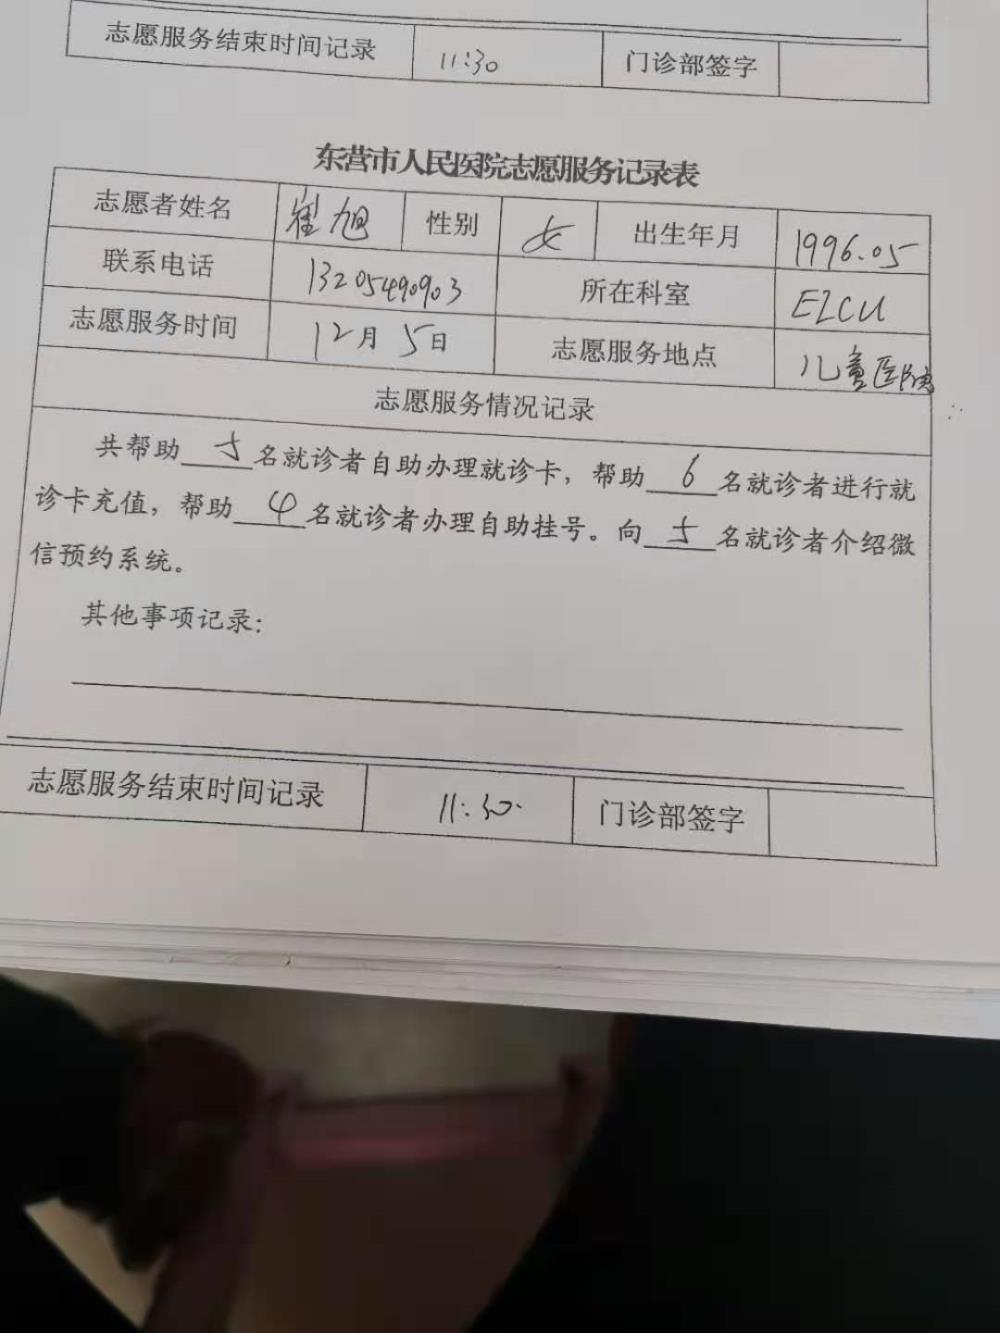 志愿服务结束时间记录 11:30 门诊部签字
东营市人民医院志愿服务记录表
志愿者姓名 崔旭 性别 女 出生年月 1996.05
联系电话 13205490903 所在科室 EICU
志愿服务时间 12月5日 志愿服务地点 儿童医院
志愿服务情况记录
共帮助 5 名就诊者自助办理就诊卡，帮助 6 名就诊者进行就
诊卡充值，帮助 4 名就诊者办理自助挂号。向 5 名就诊者介绍微
信预约系统。
其他事项记录:
志愿服务结束时间记录 11:30 门诊部签字